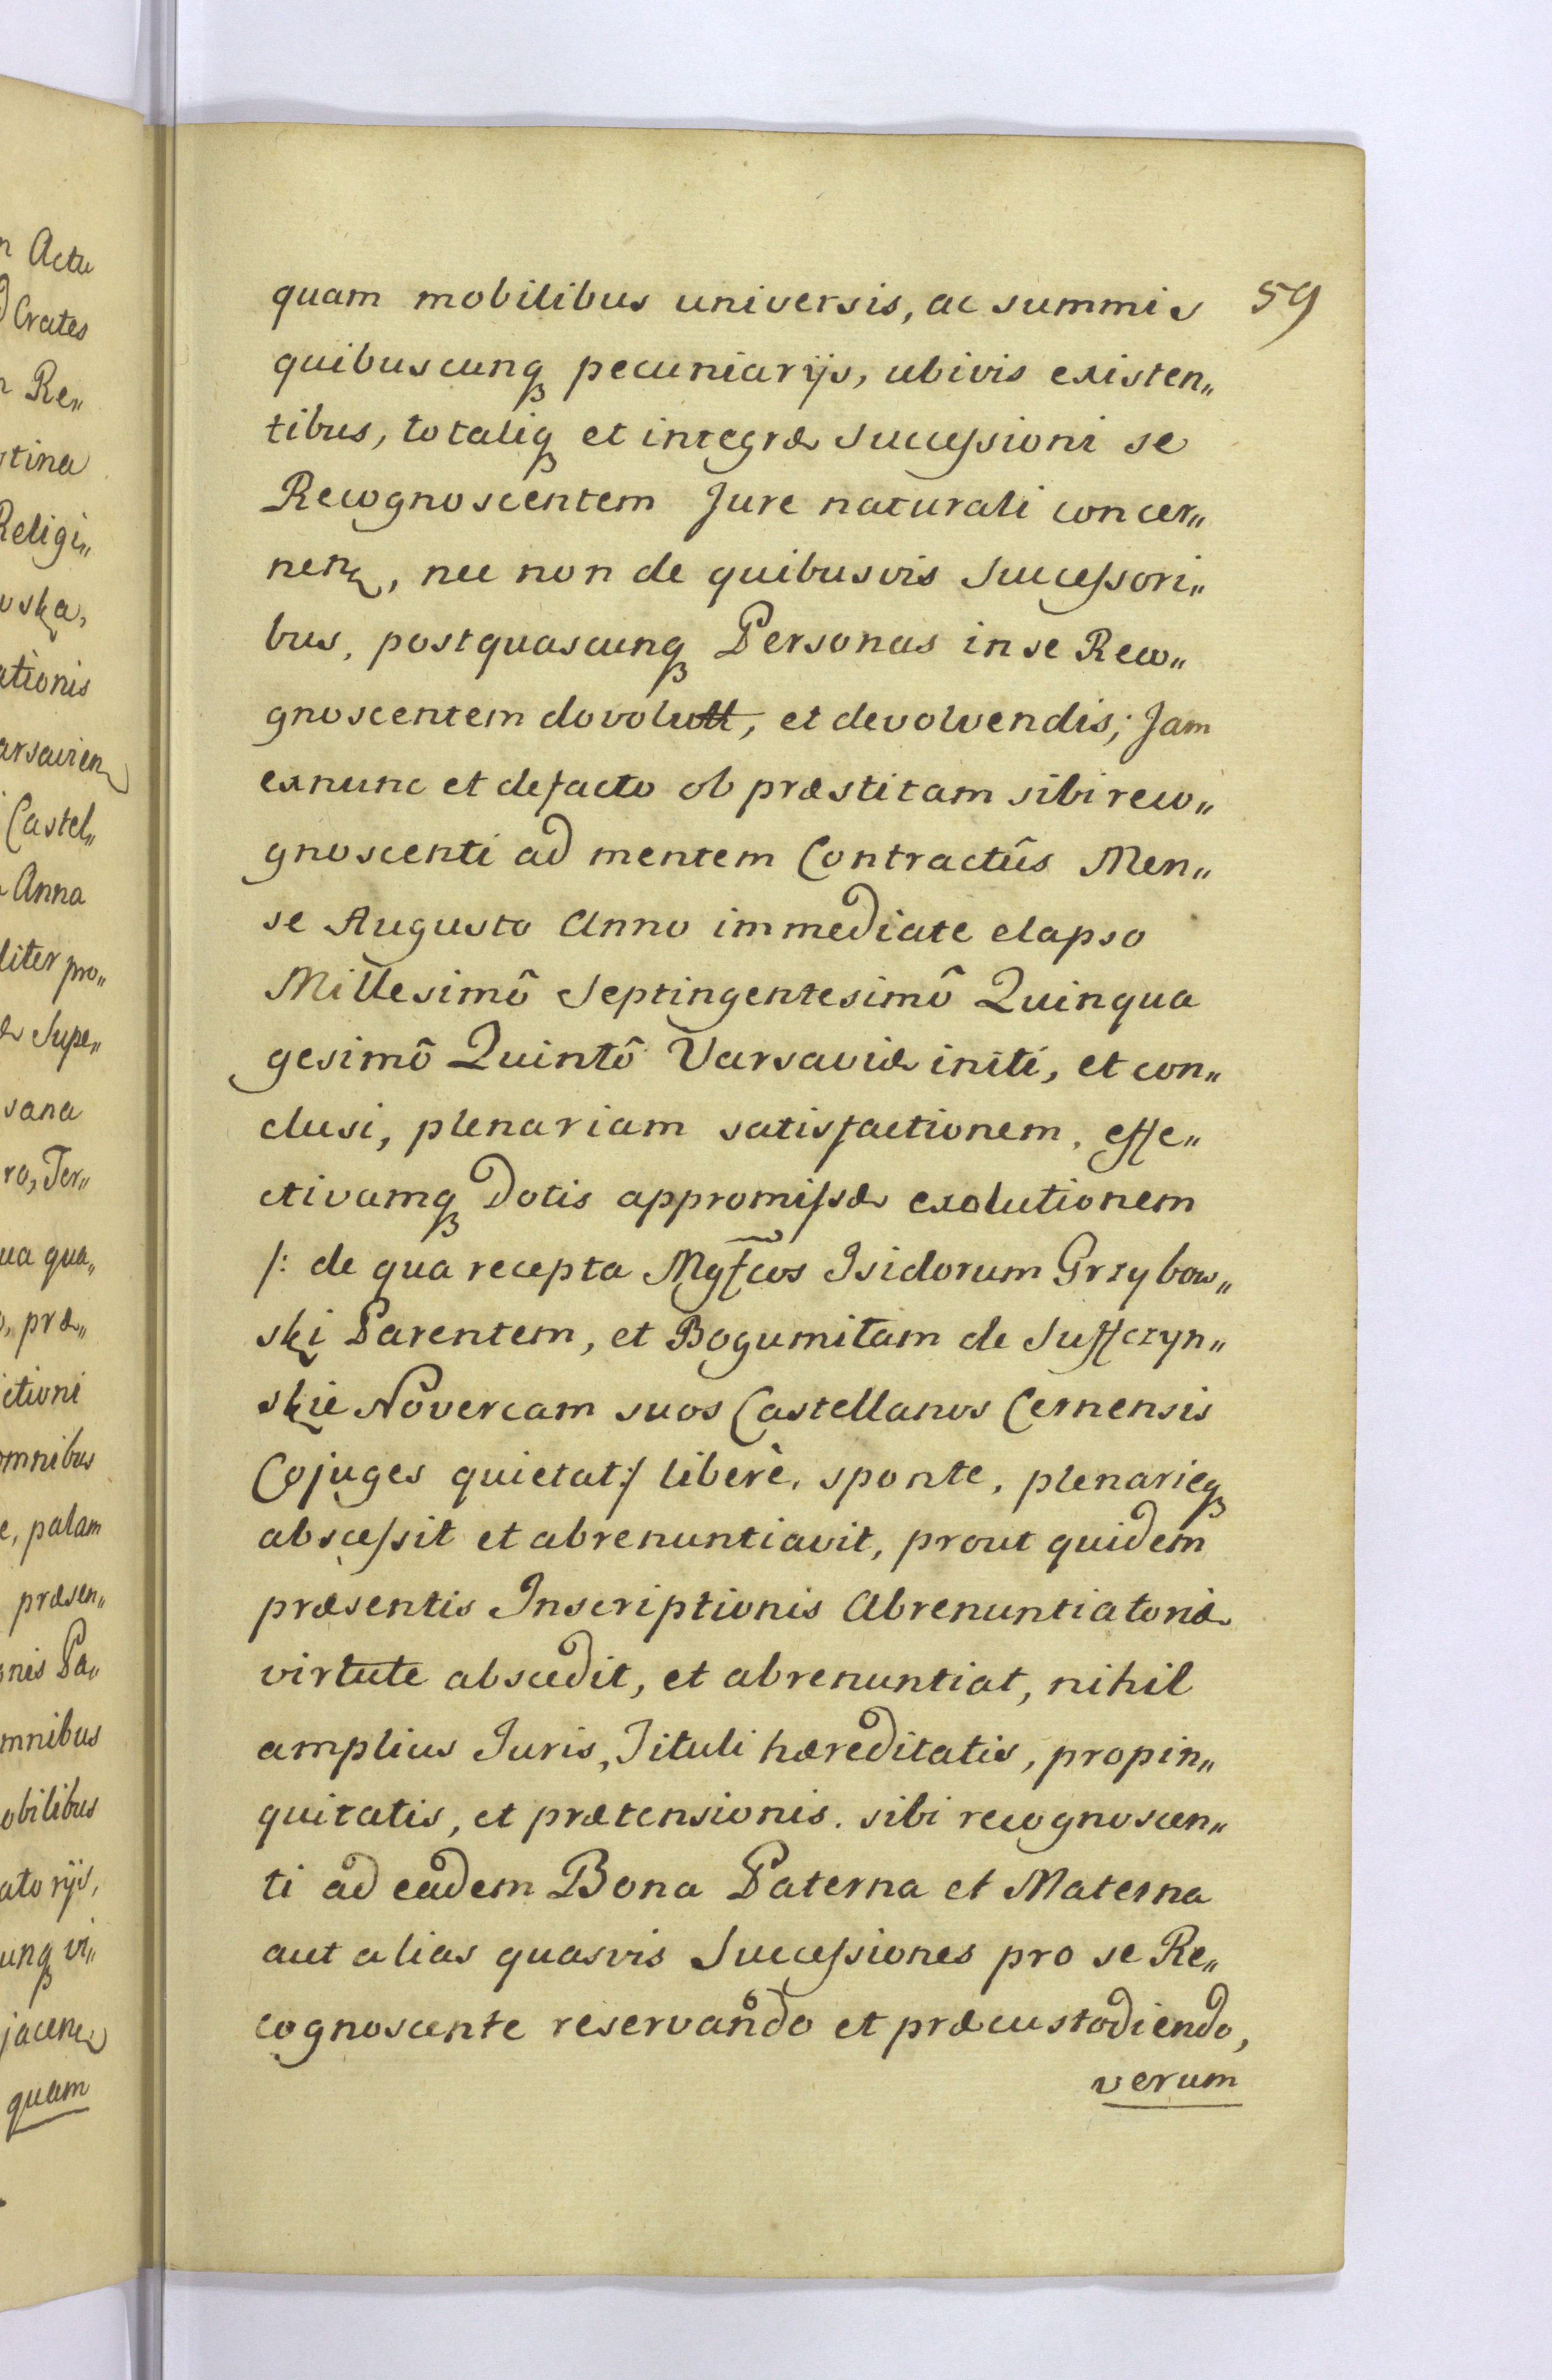 n Actu
d Crates
n Re„
stina
Religi„
wska,
ationis
arsavien
Castel„
Anna
liter pro„
æ Supe„
sana
ro, Ter„
ua qua„
præ„
ctioni
omnibus
e, palam
præsen„
nis Pa„
mnibus
obilibus
atorijs,
unq vi„
jacen
quam
59
quam mobilibus universis, ac summis
quibuscunq pecuniarijs, ubivis existen„
tibus, totaliq et integræ Successioni se
Recognoscentem Jure naturali concer„
nen, nec non de quibusvis Successori„
bus, postquascunq Personas in se Reco„
gnoscentem dovolutt, et devolvendis; Jam
exnunc et defacto ob præstitam sibi reco„
gnoscenti ad mentem Contractûs Men„
se Augusto Anno immediate elapso
Millesimô Septingentesimô Quinqua
gesimô Quintô Varsaviæ initi, et con„
clusi, plenariam satisfactionem, effe„
ctivamq Dotis appromissæ exolutionem
/: de qua recepta Mgfcos Isidorum Grzybow„
ski Parentem, et Bogumiłam de Suffczyn„
skie Novercam suos Castellanos Cernensis
Cojuges quietat :/ liberè, sponte, plenarieq
abscessit et abrenuntiavit, prout quidem
præsentis Inscriptionis Abrenuntiatoriæ
virtute abscedit, et abrenuntiat, nihil
amplius Juris, Tituli hæreditatis, propin„
quitatis, et prætensionis. sibi recognoscen„
ti ad eadem Bona Paterna et Materna
aut alias quasvis Successiones pro se Re„
cognoscente reservando et præcustodiendo,
verum